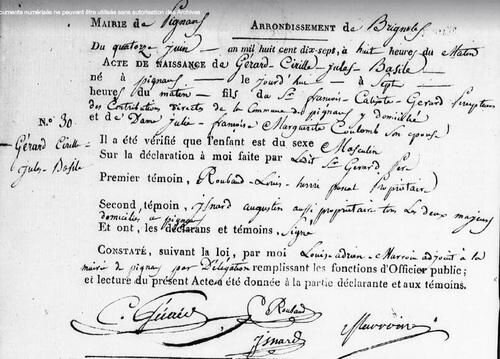 ocuments numérisés ne peuvent être utilisés sans autorisation des Archives
Mairie de Pignans Arrondissement de Brignoles
Du quatorze juin an mil huit cent dix-sept, à huit heures du Matin
Acte de Naissance de Gérard-Cirille-jules-Basile
né à pignans le jourd'hui à Sept
heures du matin fils du Sr françois-Calixte-Gérard percepteur
des Contribution directs de la Commune de pignans y domicilié
et de Dame julie-françoise-Marguerite Coulomb son épouse
N.° 30
Gérard Cirille
jules-Basile
Il a été vérifié que l'enfant est du sexe Masculin
Sur la déclaration à moi faite par Ledit Sr Gerard Per
Premier témoin, Roubaud-Louis-henri pascal Propriétaire
Second témoin, jsnard augustin aussi propriétaire tous les deux majeurs
domiciliés a pignans
Et ont, les déclarans et témoins, Signé
Constaté, suivant la loi, par moi Louis-adrien-Marroin adjoint à la
mairie de pignans par Délégation remplissant les fonctions d'Officier public;
et lecture du présent Acte a été donnée à la partie déclarante et aux témoins.
C. Gérard L Roubaud
Jsnard Marroin